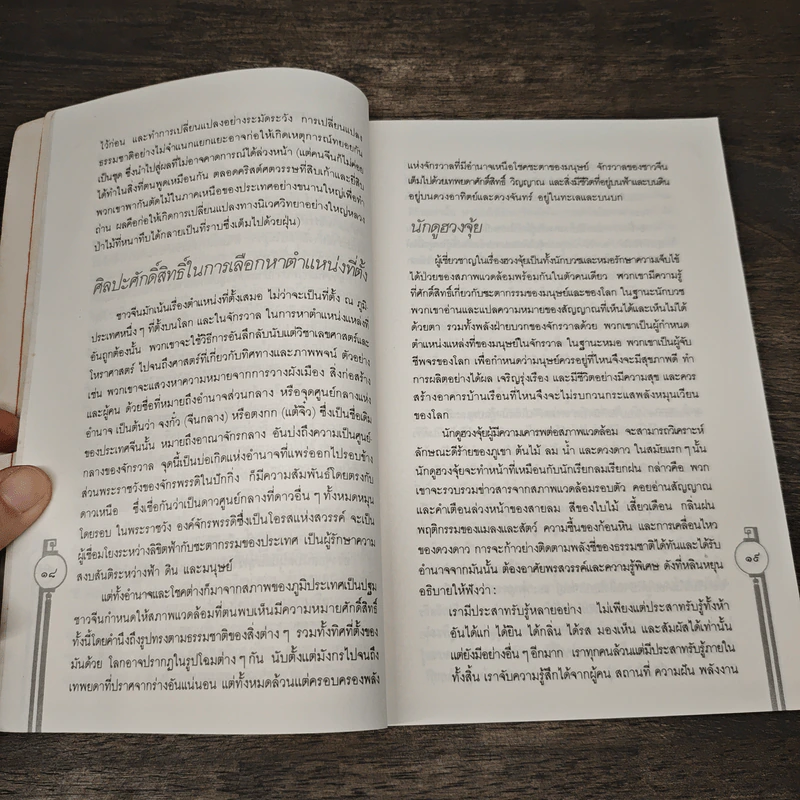 ไว้ก่อน และทำการเปลี่ยนแปลงอย่างระมัดระวัง การเปลี่ยนแปลง
ธรรมชาติอย่างไม่จำแนกแยกแยะอาจก่อให้เกิดเหตุการณ์ทยอยกัน
เป็นชุด ซึ่งนำไปสู่ผลที่ไม่อาจคาดการณ์ได้ล่วงหน้า (แต่คนจีนก็ไม่ค่อย
ได้ทำในสิ่งที่ตนพูดเหมือนกัน ตลอดคริสต์ศตวรรษที่สิบเก้าและยี่สิบ
พวกเขาพากันตัดไม้ในภาคเหนือของประเทศอย่างขนานใหญ่เพื่อทำ
ถ่าน ผลคือก่อให้เกิดการเปลี่ยนแปลงทางนิเวศวิทยาอย่างใหญ่หลวง
ป่าไม้ที่หนาทึบได้กลายเป็นที่ราบซึ่งเต็มไปด้วยฝุ่น)
ศิลปะศักดิ์สิทธิ์ในการเลือกหาตำแหน่งที่ตั้ง
ชาวจีนมักเน้นเรื่องตำแหน่งที่ตั้งเสมอ ไม่ว่าจะเป็นที่ตั้ง ณ ภูมิ
ประเทศหนึ่งๆ ที่ตั้งบนโลก และในจักรวาล ในการหาตำแหน่งแหล่งที่
อันถูกต้องนั้น พวกเขาจะใช้วิธีการอันลึกลับนับแต่วิชาเลขศาสตร์และ
โหราศาสตร์ ไปจนถึงศาสตร์ที่เกี่ยวกับทิศทางและภาพพจน์ ตัวอย่าง
เช่น พวกเขาจะแสวงหาความหมายจากการวางผังเมือง สิ่งก่อสร้าง
และผู้คน ด้วยชื่อที่หมายถึงอำนาจส่วนกลาง หรือจุดศูนย์กลางแห่ง
อำนาจ เป็นต้นว่า จงกั๋ว (จีนกลาง) หรือตงกก (แต้จิ๋ว) ซึ่งเป็นชื่อเดิม
ของประเทศจีนนั้น หมายถึงอาณาจักรกลาง อันบ่งถึงความเป็นศูนย์
กลางของจักรวาล จุดนี้เป็นบ่อเกิดแห่งอำนาจที่แพร่ออกไปรอบข้าง
ส่วนพระราชวังของจักรพรรดิในปักกิ่ง ก็มีความสัมพันธ์โดยตรงกับ
ดาวเหนือ ซึ่งเชื่อกันว่าเป็นดาวศูนย์กลางที่ดาวอื่นๆ ทั้งหมดหมุน
โดยรอบ ในพระราชวัง องค์จักรพรรดิซึ่งเป็นโอรสแห่งสวรรค์ จะเป็น
ผู้เชื่อมโยงระหว่างลิขิตฟ้ากับชะตากรรมของประเทศ เป็นผู้รักษาความ
สงบสันติระหว่างฟ้า ดิน และมนุษย์
แต่ทั้งอำนาจและโชคต่างก็มาจากสภาพของภูมิประเทศเป็นปฐม
ชาวจีนกำหนดให้สภาพแวดล้อมที่ตนพบเห็นมีความหมายศักดิ์สิทธิ์
ทั้งนี้โดยคำนึงถึงรูปทรงตามธรรมชาติของสิ่งต่างๆ รวมทั้งทิศที่ตั้งของ
มันด้วย โลกอาจปรากฏในรูปโฉมต่างๆ กัน นับตั้งแต่มังกรไปจนถึง
เทพยดาที่ปราศจากร่างอันแน่นอน แต่ทั้งหมดล้วนแต่ครอบครองพลัง
๑๘
แห่งจักรวาลที่มีอำนาจเหนือโชคชะตาของมนุษย์ จักรวาลของชาวจีน
เต็มไปด้วยเทพยดาศักดิ์สิทธิ์ วิญญาณ และสิ่งมีชีวิตที่อยู่บนฟ้าและบนดิน
อยู่บนดวงอาทิตย์และดวงจันทร์ อยู่ในทะเลและบนบก
นักดูฮวงจุ้ย
ผู้เชี่ยวชาญในเรื่องฮวงจุ้ยเป็นทั้งนักบวชและหมอรักษาความเจ็บไข้
ได้ป่วยของสภาพแวดล้อมพร้อมกันในตัวคนเดียว พวกเขามีความรู้
ที่ศักดิ์สิทธิ์เกี่ยวกับชะตากรรมของมนุษย์และของโลก ในฐานะนักบวช
พวกเขาอ่านและแปลความหมายของสัญญาณที่เห็นได้และเห็นไม่ได้
ด้วยตา รวมทั้งพลังฝ่ายบวกของจักรวาลด้วย พวกเขาเป็นผู้กำหนด
ตำแหน่งแหล่งที่ของมนุษย์ในจักรวาล ในฐานะหมอ พวกเขาเป็นผู้จับ
ชีพจรของโลก เพื่อกำหนดว่ามนุษย์ควรอยู่ที่ไหนจึงจะมีสุขภาพดี ทำ
การผลิตอย่างได้ผล เจริญรุ่งเรือง และมีชีวิตอย่างมีความสุข และควร
สร้างอาคารบ้านเรือนที่ไหนจึงจะไม่รบกวนกระแสพลังหมุนเวียน
ของโลก
นักดูฮวงจุ้ยผู้มีความเคารพต่อสภาพแวดล้อม จะสามารถวิเคราะห์
ลักษณะดีร้ายของภูเขา ต้นไม้ ลม น้ำ และดวงดาว ในสมัยแรกๆ นั้น
นักดูฮวงจุ้ยจะทำหน้าที่เหมือนกับนักเรียกลมเรียกฝน กล่าวคือ พวก
เขาจะรวบรวมข่าวสารจากสภาพแวดล้อมรอบตัว คอยอ่านสัญญาณ
และคำเตือนล่วงหน้าของสายลม สีของใบไม้ เสี้ยวเดือน กลิ่นฝน
พฤติกรรมของแมลงและสัตว์ ความชื้นของก้อนหิน และการเคลื่อนไหว
ของดวงดาว การจะก้าวย่างติดตามพลังชี่ของธรรมชาติได้ทันและได้รับ
อำนาจจากมันนั้น ต้องอาศัยพรสวรรค์และความรู้พิเศษ ดังที่หลินหยุน
อธิบายให้ฟังว่า :
เรามีประสาทรับรู้หลายอย่าง ไม่เพียงแต่ประสาทรับรู้ทั้งห้า
อันได้แก่ ได้ยิน ได้กลิ่น ได้รส มองเห็น และสัมผัสได้เท่านั้น
แต่ยังมีอย่างอื่นๆ อีกมาก เราทุกคนล้วนแต่มีประสาทรับรู้ภายใน
ทั้งสิ้น เราจับความรู้สึกได้จากผู้คน สถานที่ ความฝัน พลังงาน
๑๙